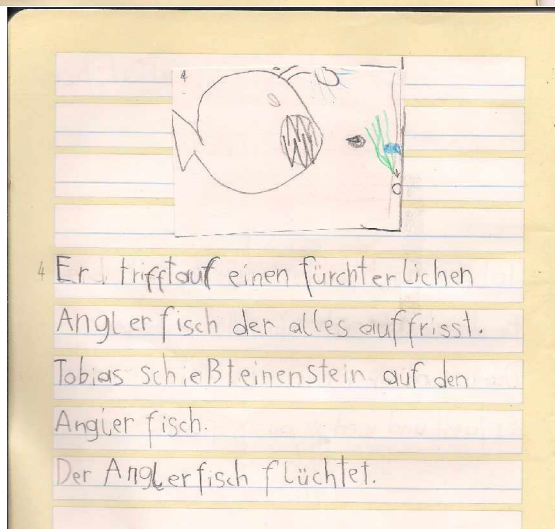 4
4 Er trifft auf einen fürchterlichen
Anglerfisch der alles auffrisst.
Tobias schießt einen Stein auf den
Anglerfisch.
Der Anglerfisch flüchtet.